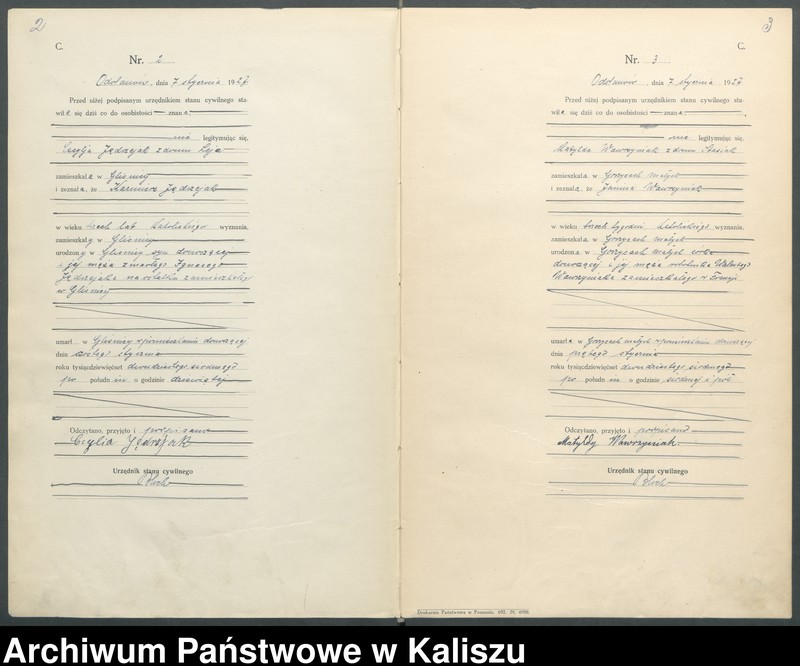 2
C.
Nr. 2
Odolanów, dnia 7 stycznia 1927
Przed niżej podpisanym urzędnikiem stanu cywilnego sta-
wiła się dziś co do osobistości — znana.
nie legitymując się.
zamieszkała w Gliśnicy
i zeznała, że Kazimierz Jędrzejak
w wieku trzech lat katolickiego wyznania,
zamieszkały w Gliśnicy
urodzony w Gliśnicy syn donoszącej
i jej męża zmarłego Ignacego
Jędrzejaka na ostatku zamieszkałego
w Gliśnicy
umarł w Gliśnicy w pomieszkaniu donoszącej
dnia szóstego stycznia
roku tysiącdziewięćset dwudziestego siódmego
po połudn iu o godzinie dziewiątej
Odczytano, przyjęto i podpisano
Cecylia Jędrzejak
Urzędnik stanu cywilnego
3
C.
Nr. 3
Odolanów, dnia 7 stycznia 1927
Przed niżej podpisanym urzędnikiem stanu cywilnego sta-
wiła się dziś co do osobistości — znana.
nie legitymując się.
Matylda Wawrzyniak z domu Stasiak
zamieszkała w Gorzycach małych
i zeznała, że Janina Wawrzyniak
w wieku trzech tygodni katolickiego wyznania,
zamieszkała w Gorzycach małych
urodzona w Gorzycach małych córka
donoszącej i jej męża robotnika Walentego
Wawrzyniaka zamieszkałego w Francji
umarła w Gorzycach małych w pomieszkaniu donoszącej
dnia piątego stycznia
roku tysiącdziewięćset dwudziestego siódmego
po połudn iu o godzinie siódmej i pół
Odczytano, przyjęto i podpisano
Matyldy Wawrzyniak.
Urzędnik stanu cywilnego
Drukarnia Państwowa w Poznaniu.
Archiwum Państwowe w Kaliszu